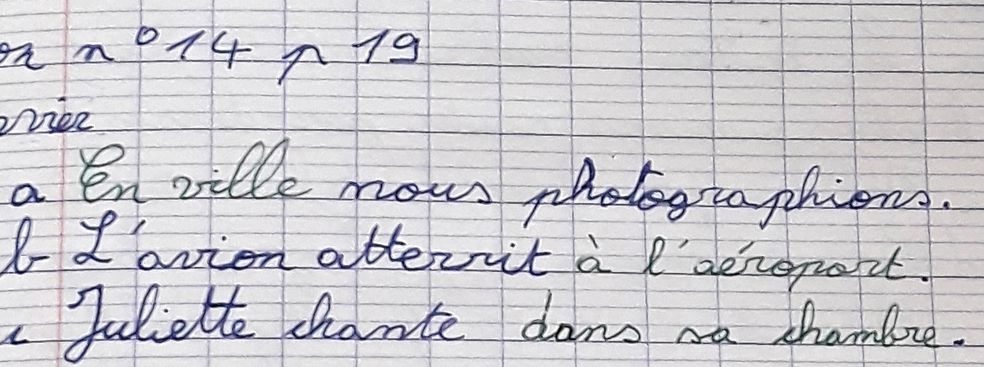 n° 14 p 19
a En ville nous photographions.
b L'avion atterrit à l'aéroport.
c Juliette chante dans sa chambre.